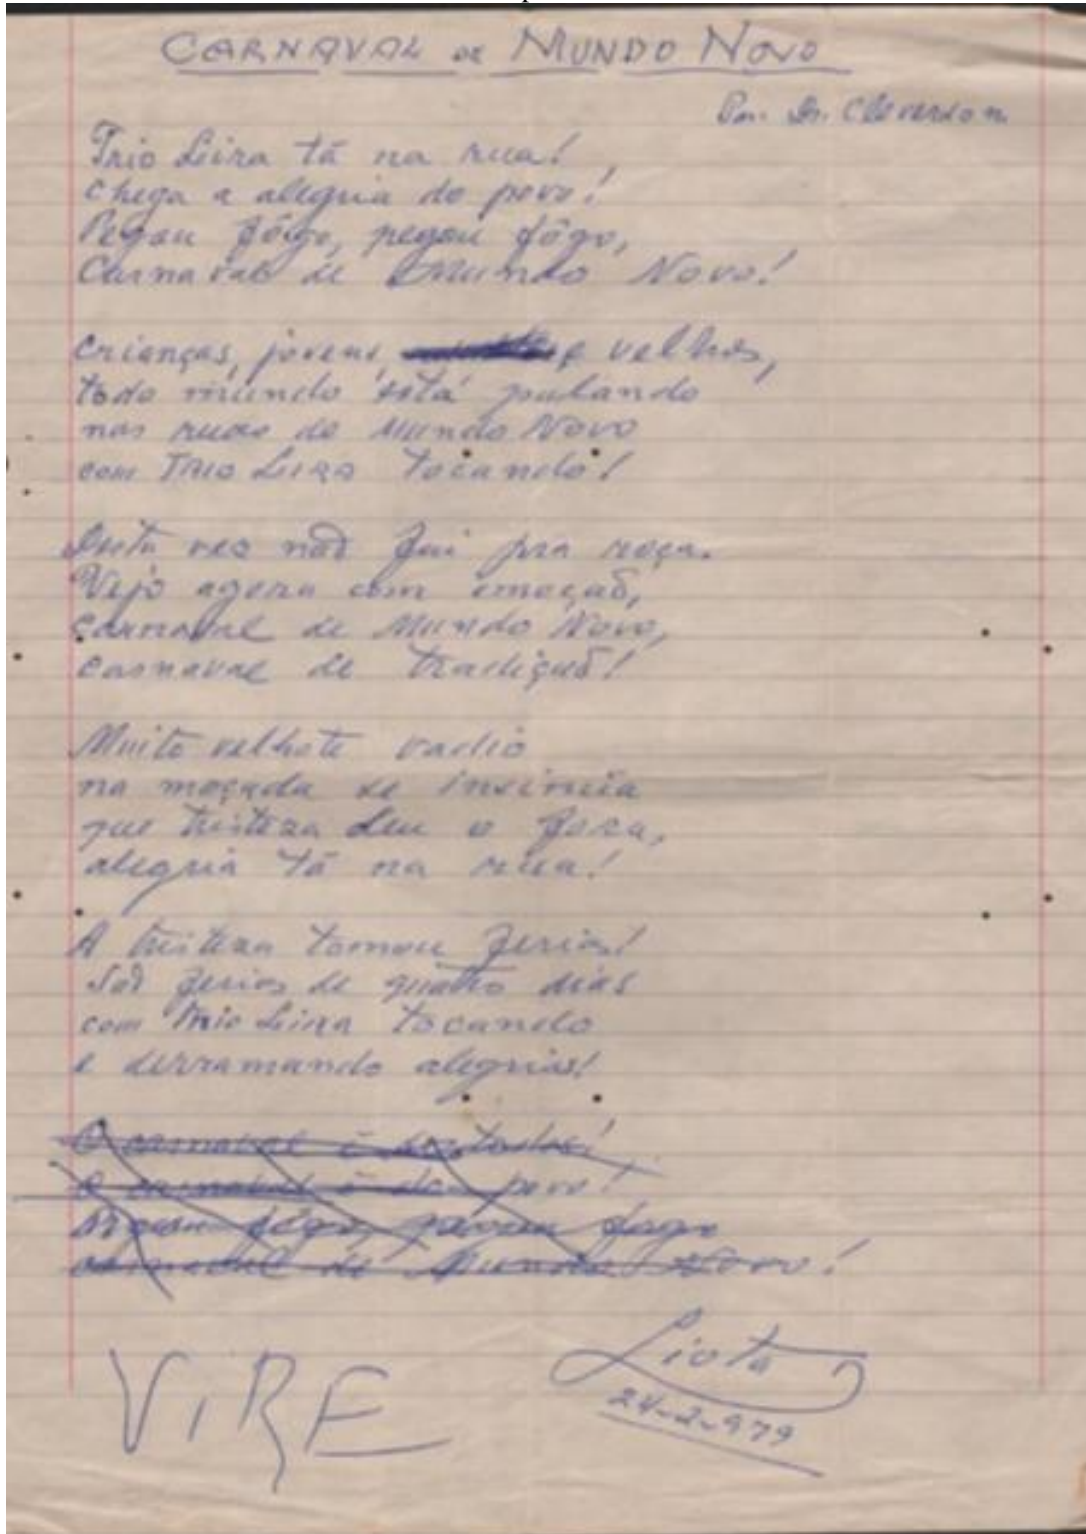 CARNAVAL DE MUNDO NOVO
Por. Dr. Cleverson
Trio Leira tá na rua!
Chega a alegria do povo!
Pegou fôgo, pegou fôgo,
Carnaval de Mundo Novo!
Crianças, jovens, e velhos,
todo mundo está pulando
nas ruas de Mundo Novo
com Trio Leira tocando!
Desta vez não fui pra roça.
Vejo agora com emoção,
carnaval de Mundo Novo,
carnaval de tradição!
Muito velhote vadio
na moçada se
que tristeza deu o fora,
alegria tá na rua!
A tristeza tomou ferias!
São ferias de quatro dias
com Trio Leira tocando
e derramando alegrias!
O carnaval é de todos!
O carnaval é do povo!
Pegou fôgo, pegou fogo
carnaval de Mundo Novo!
VIRE
Liota
24-2-979